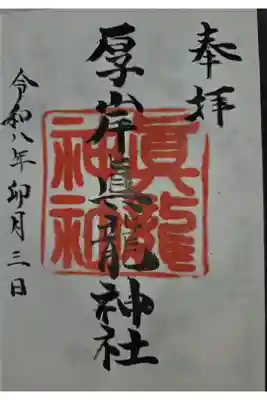 奉拝
厚岸真龍神社
眞龍神社
令和八年卯月三日